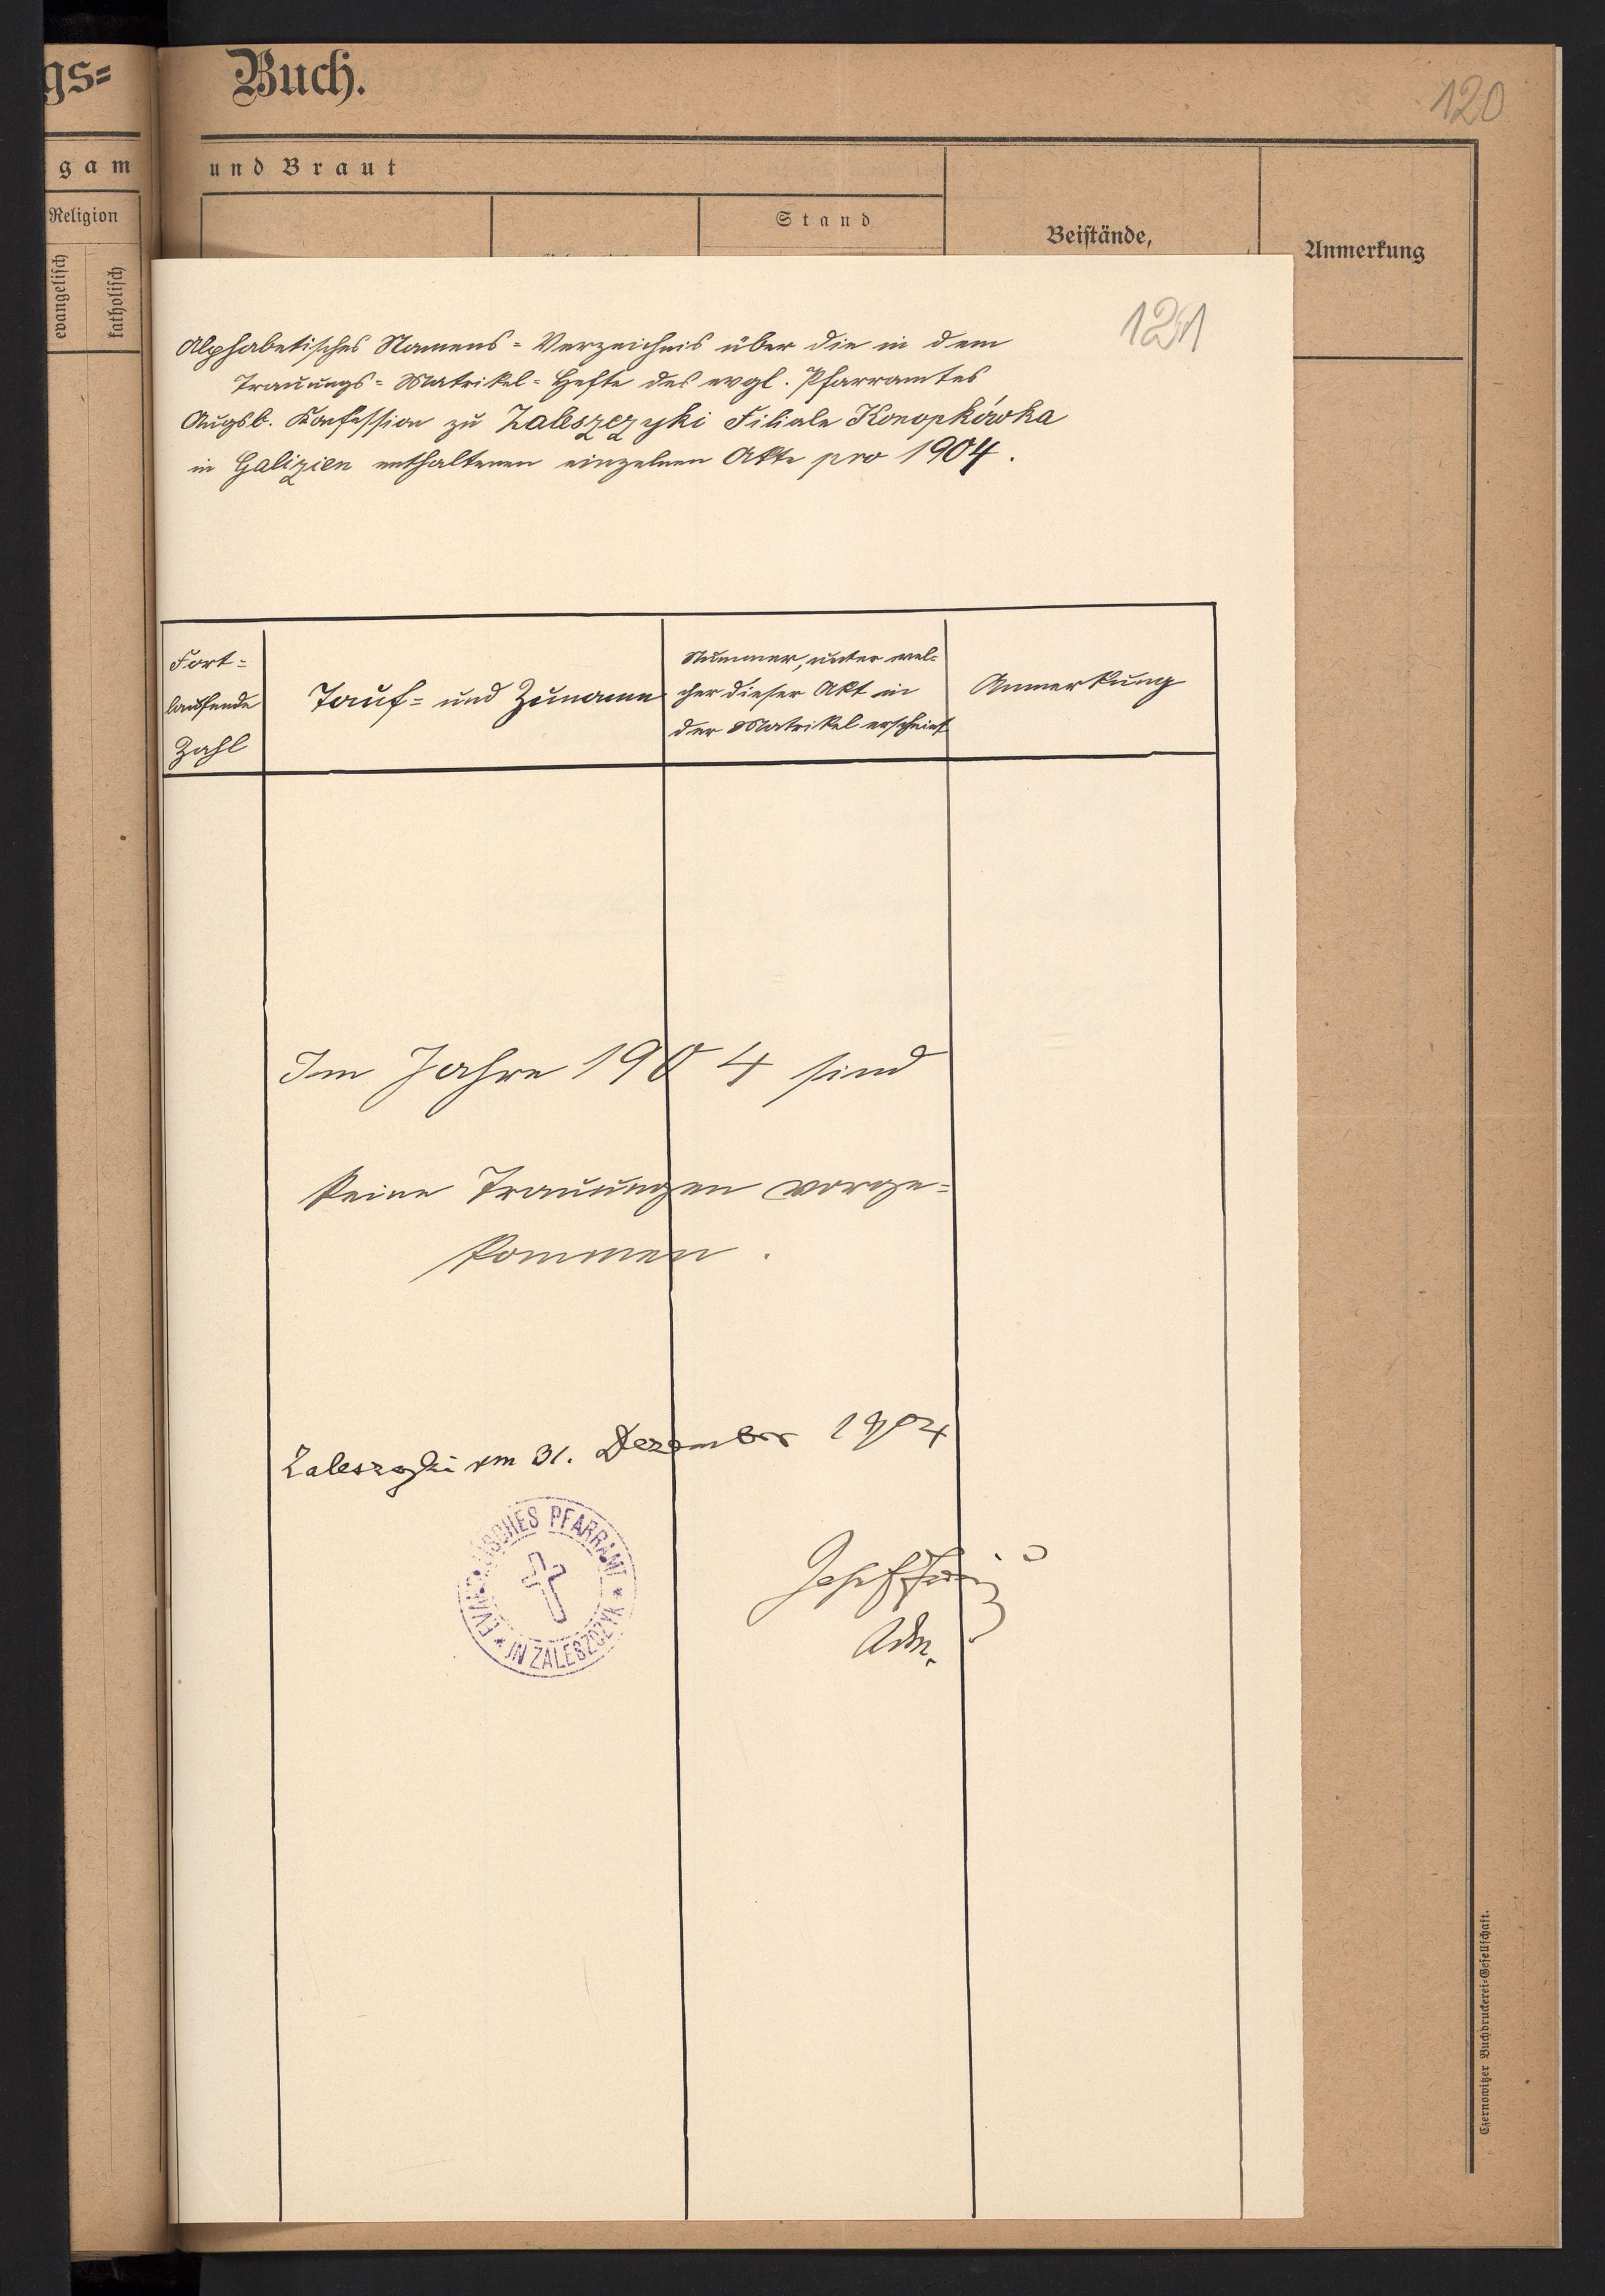 gs=
Buch.
120
gam
und Braut
Religion
Stand
Beistände,
Anmerkung
evangelisch
katholisch
121
Alphabetisches Namens=Verzeichnis über die in dem
Trauungs=Matrikel=Hefte des evgl. Pfarramtes
Augsb. Konfession zu Zaleszczyki Filiale Konopkówka
in Galizien enthaltenen einzelnen Akte pro 1904.
Fort=
laufende
Zahl
Tauf= und Zuname
Nummer, unter wel=
cher dieser Akt in
der Matrikel erscheint
Anmerkung
Im Jahre 1904 sind
keine Trauungen vorge=
kommen.
Zaleszczyki am 31. Dezember 1904
EVANGELISCHES PFARRAMT
IN ZALESZCZYK
Josef
Adm.
Czernowitzer Buchdruckerei=Gesellschaft.